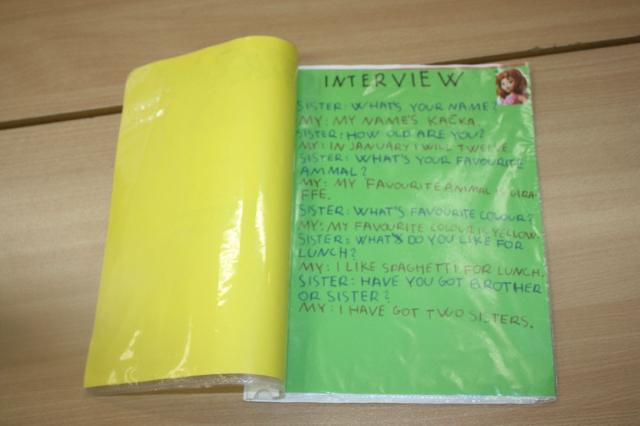 INTERVIEW
SISTER: WHAT'S YOUR NAME?
MY: MY NAME'S KAČKA.
SISTER: HOW OLD ARE YOU?
MY: IN JANUARY I WILL TWELVE
SISTER: WHAT'S YOUR FAVOURITE
ANIMAL?
MY: MY FAVOURITE ANIMAL IS GIRA-
FFE.
SISTER: WHAT'S FAVOURITE COLOUR?
MY: MY FAVOURITE COLOUR IS YELLOW.
SISTER: WHAT'S DO YOU LIKE FOR
LUNCH?
MY: I LIKE SPAGHETTI FOR LUNCH.
SISTER: HAVE YOU GOT BROTHER
OR SISTER?
MY: I HAVE GOT TWO SISTERS.